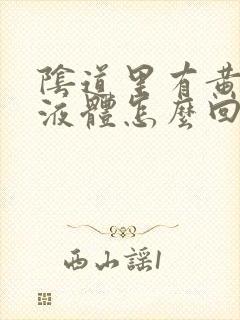 陰道里有黄
液體怎麼回
西山謡1